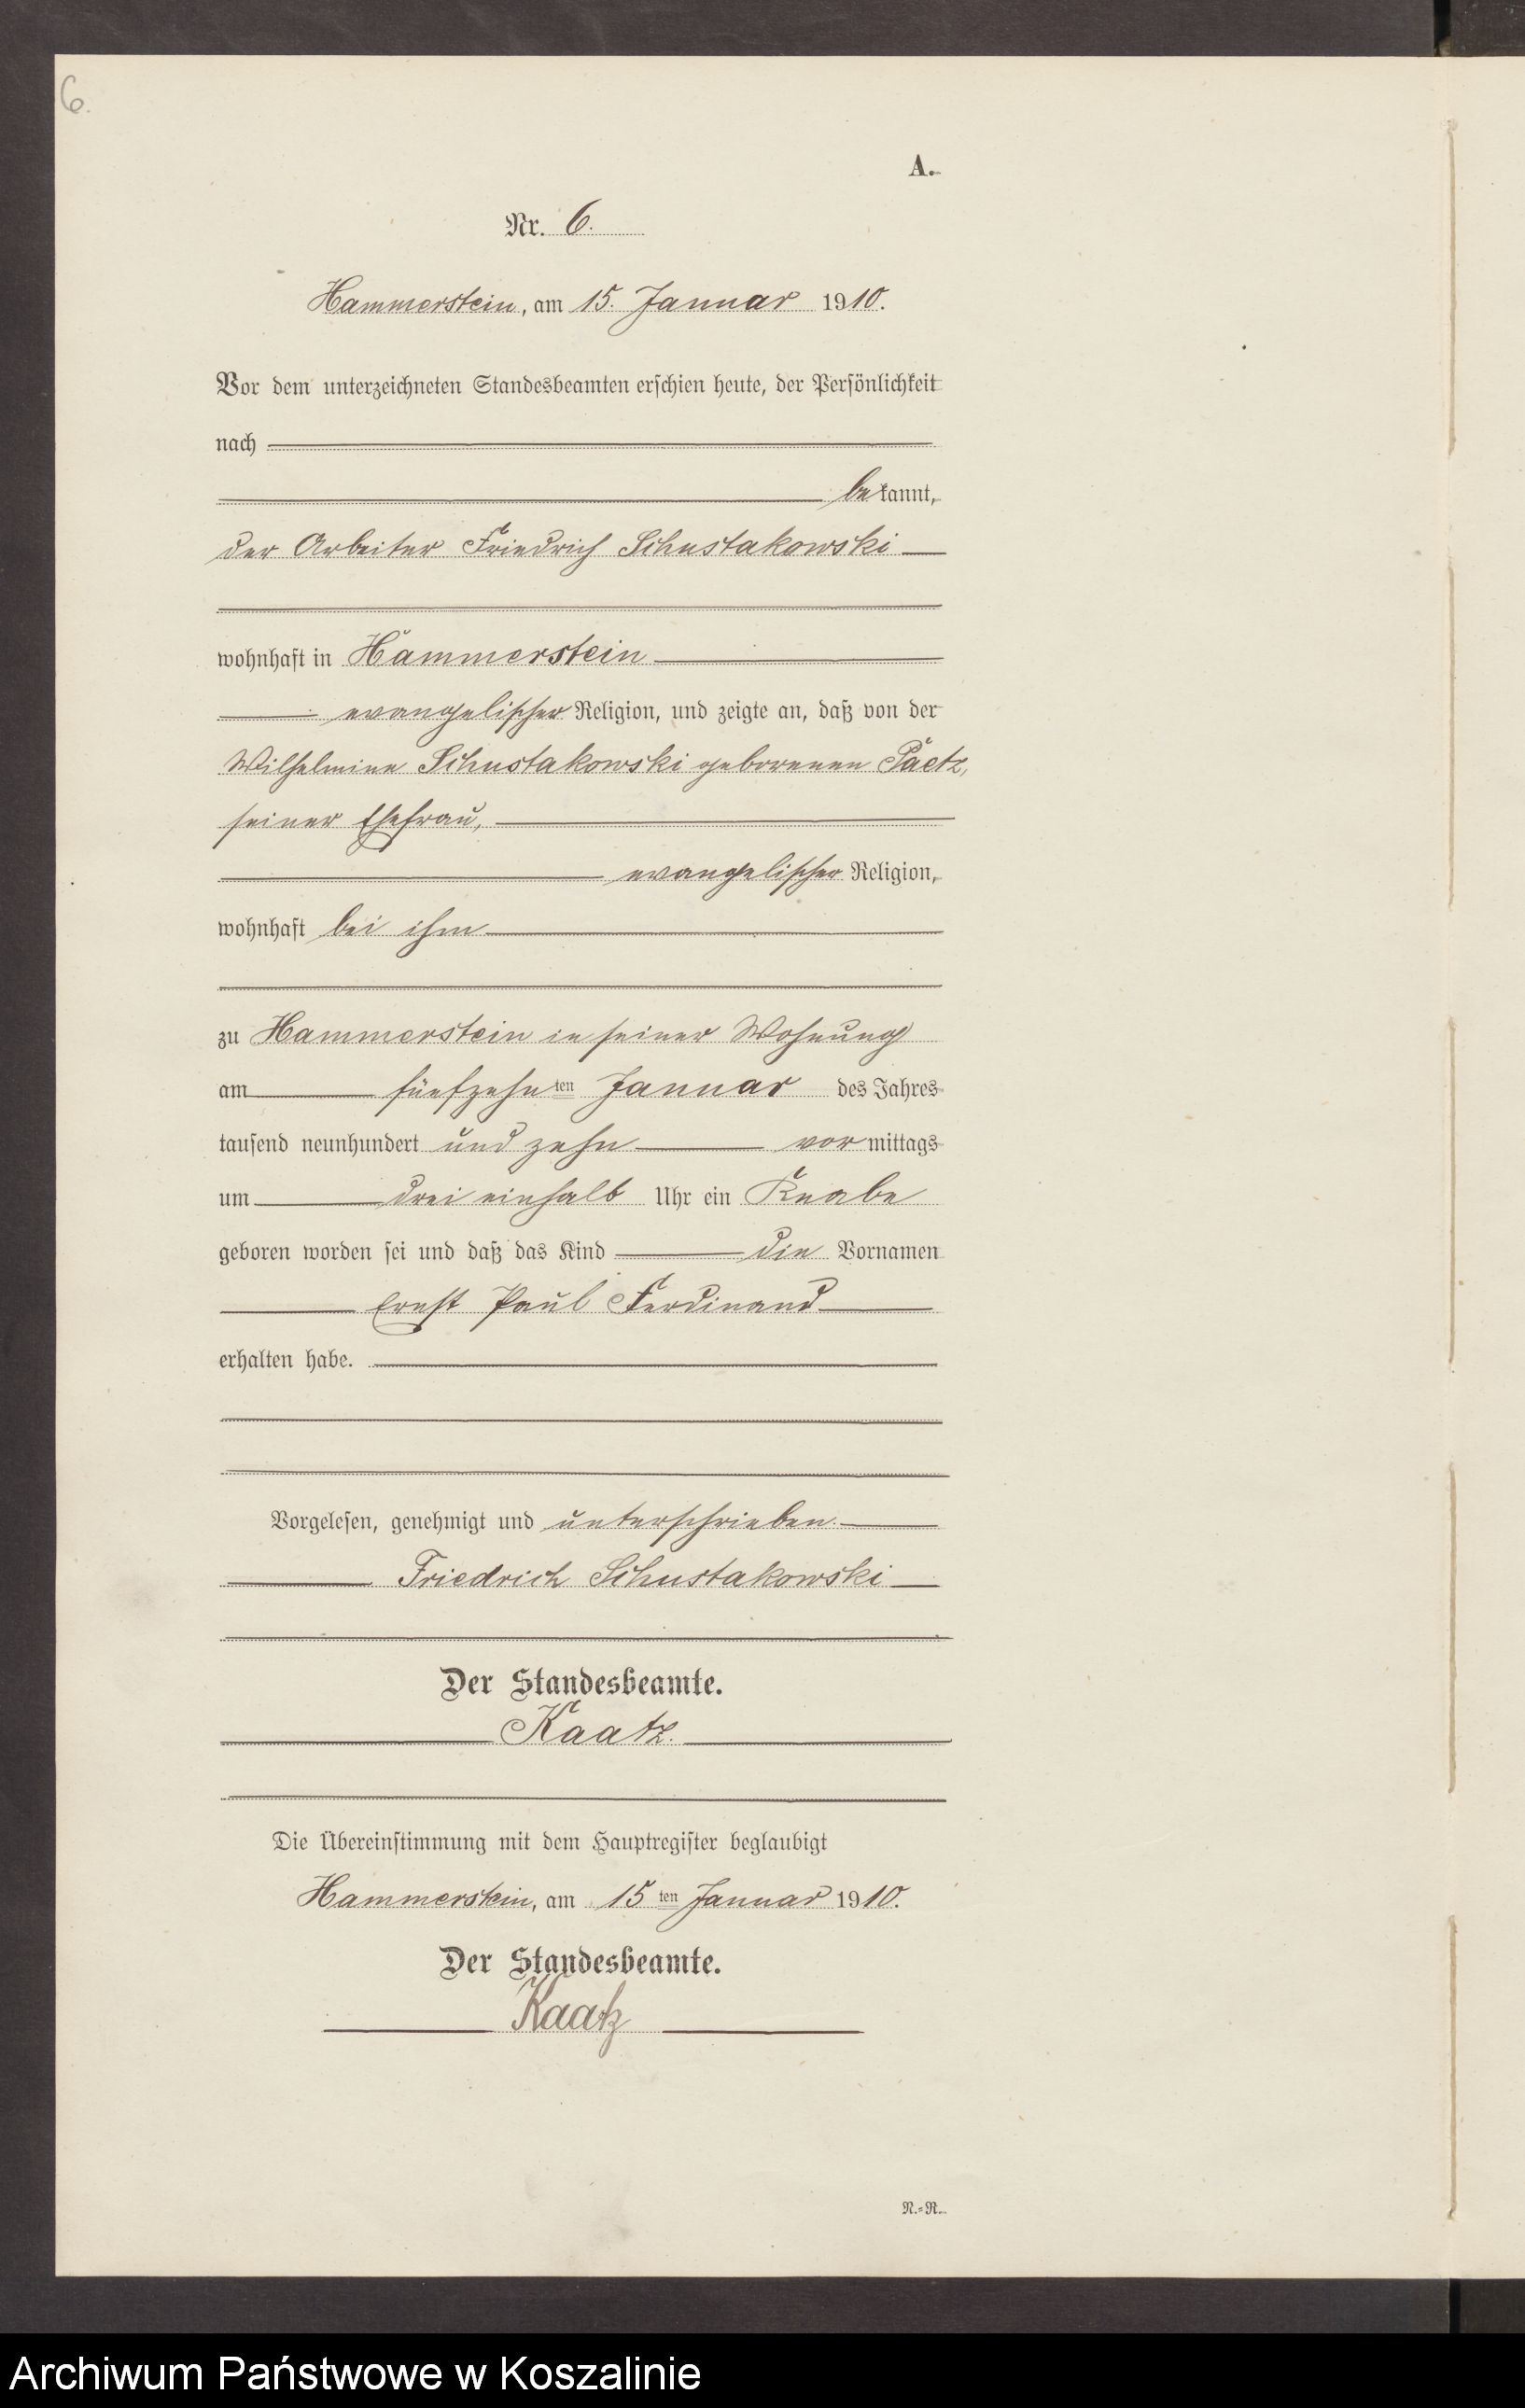 6.
A.
Nr. 6.
Hammerstein, am 15. Januar 1910.
Vor dem unterzeichneten Standesbeamten erschien heute, der Persönlichkeit
nach
bekannt,
der Arbeiter Friedrich Schustakowski
wohnhaft in Hammerstein
evangelischer Religion, und zeigte an, daß von der
Wilhelmine Schustakowski geborenen Paetz,
seiner Ehefrau,
evangelischer Religion,
wohnhaft bei ihm
zu Hammerstein in seiner Wohnung
am fünfzehnten Januar des Jahres
tausend neunhundert und zehn vormittags
um drei einhalb Uhr ein Knabe
geboren worden sei und daß das Kind die Vornamen
Ernst Paul Ferdinand
erhalten habe.
Vorgelesen, genehmigt und unterschrieben
Friedrich Schustakowski
Der Standesbeamte.
Kaatz.
Die Übereinstimmung mit dem Hauptregister beglaubigt
Hammerstein, am 15ten Januar 1910.
Der Standesbeamte.
Kaatz
N.=R.
Archiwum Państwowe w Koszalinie